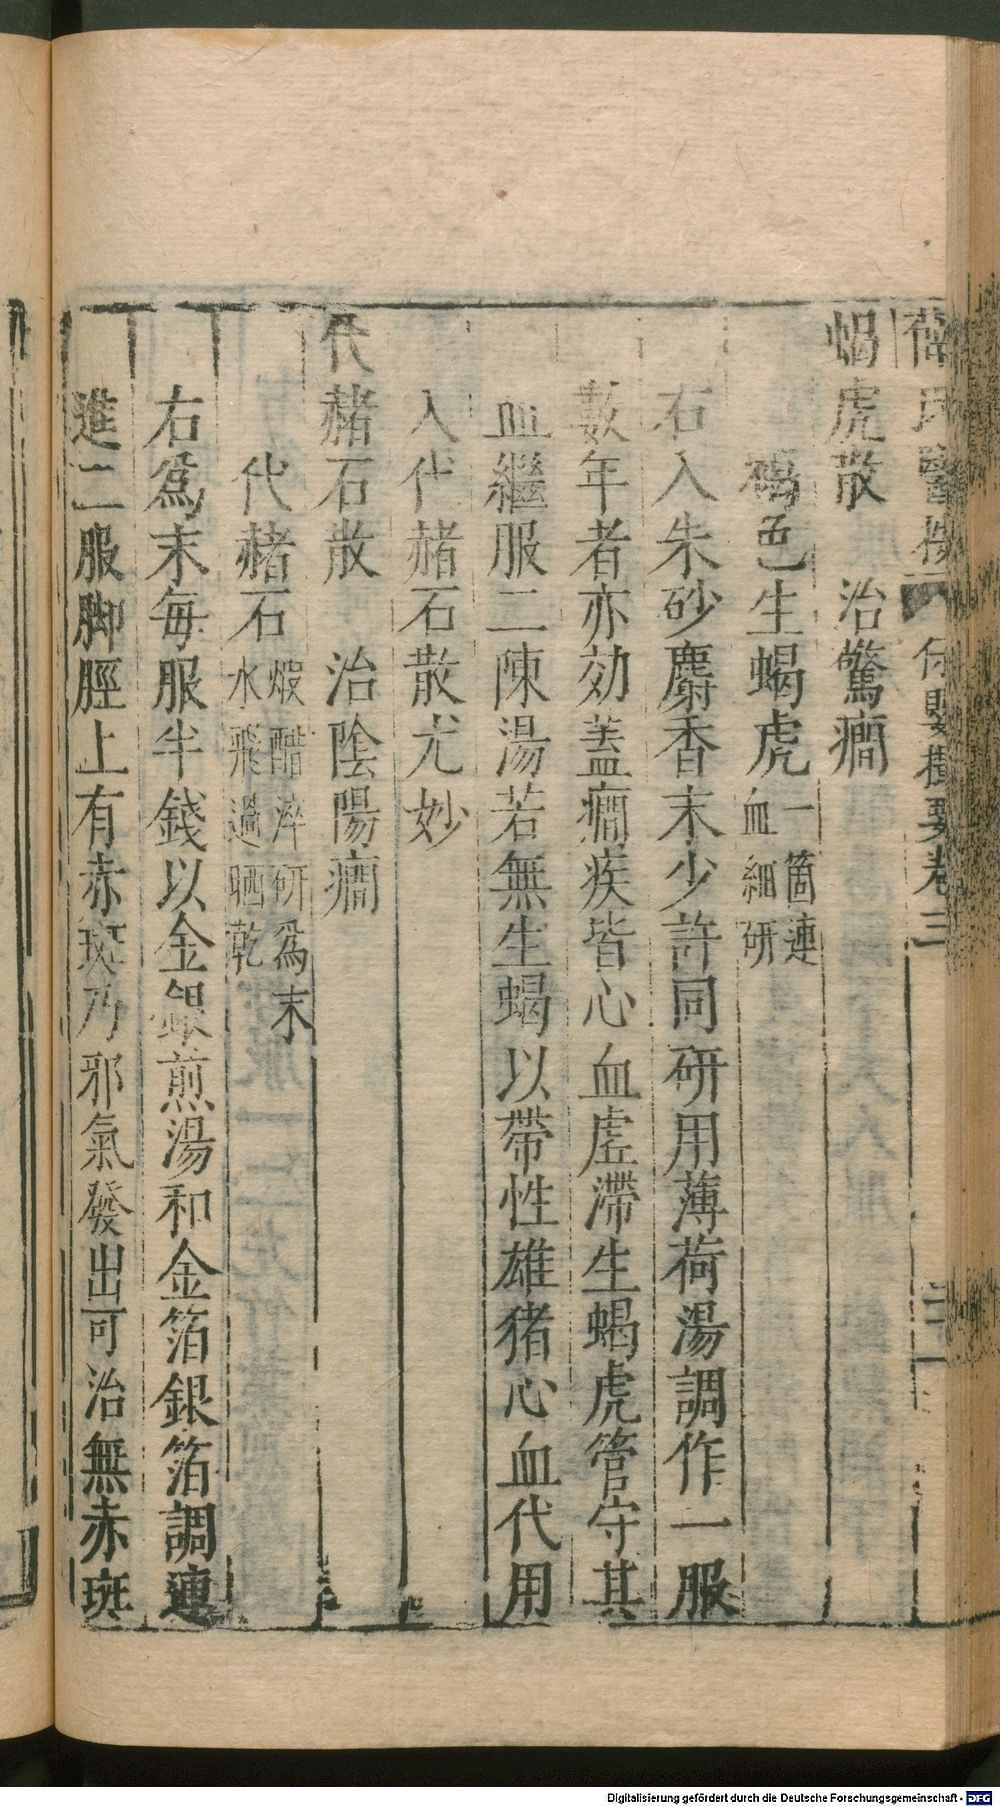 薛氏醫按 保嬰撮要卷三 二十一
蝎虎散 治驚癇
褐色生蝎虎一箇連血細研
右入朱砂麝香末少許同研用薄荷湯調作一服
數年者亦効蓋癇疾皆心血虛滯生蝎虎管守其
血繼服二陳湯若無生蝎以帶性雄猪心血代用
入代赭石散尤妙
代赭石散 治陰陽癇
代赭石煅醋淬研爲末水飛過晒乾
右爲末每服半錢以金銀煎湯和金箔銀箔調連
進二服脚脛上有赤斑乃邪氣發出可治無赤斑
Digitalisierung gefördert durch die Deutsche Forschungsgemeinschaft - DFG